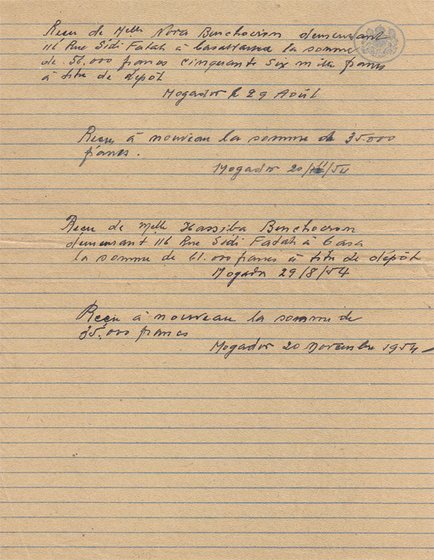 Reçu de Melle Nora Benchocron demeurant
116 Rue Sidi Fatah à Casablanca la somme
de 56.000 francs cinquante six mille francs
à titre de dépôt
Mogador le 29 Août
Reçu à nouveau la somme de 35000
francs.
Mogador 20/11/54
Reçu de Melle Hassiba Benchocron
demeurant 116 Rue Sidi Fatah à Casa
la somme de 61.000 francs à titre de dépôt
Mogador 29/8/54
Reçu à nouveau la somme de
35.000 francs
Mogador 20 Novembre 1954